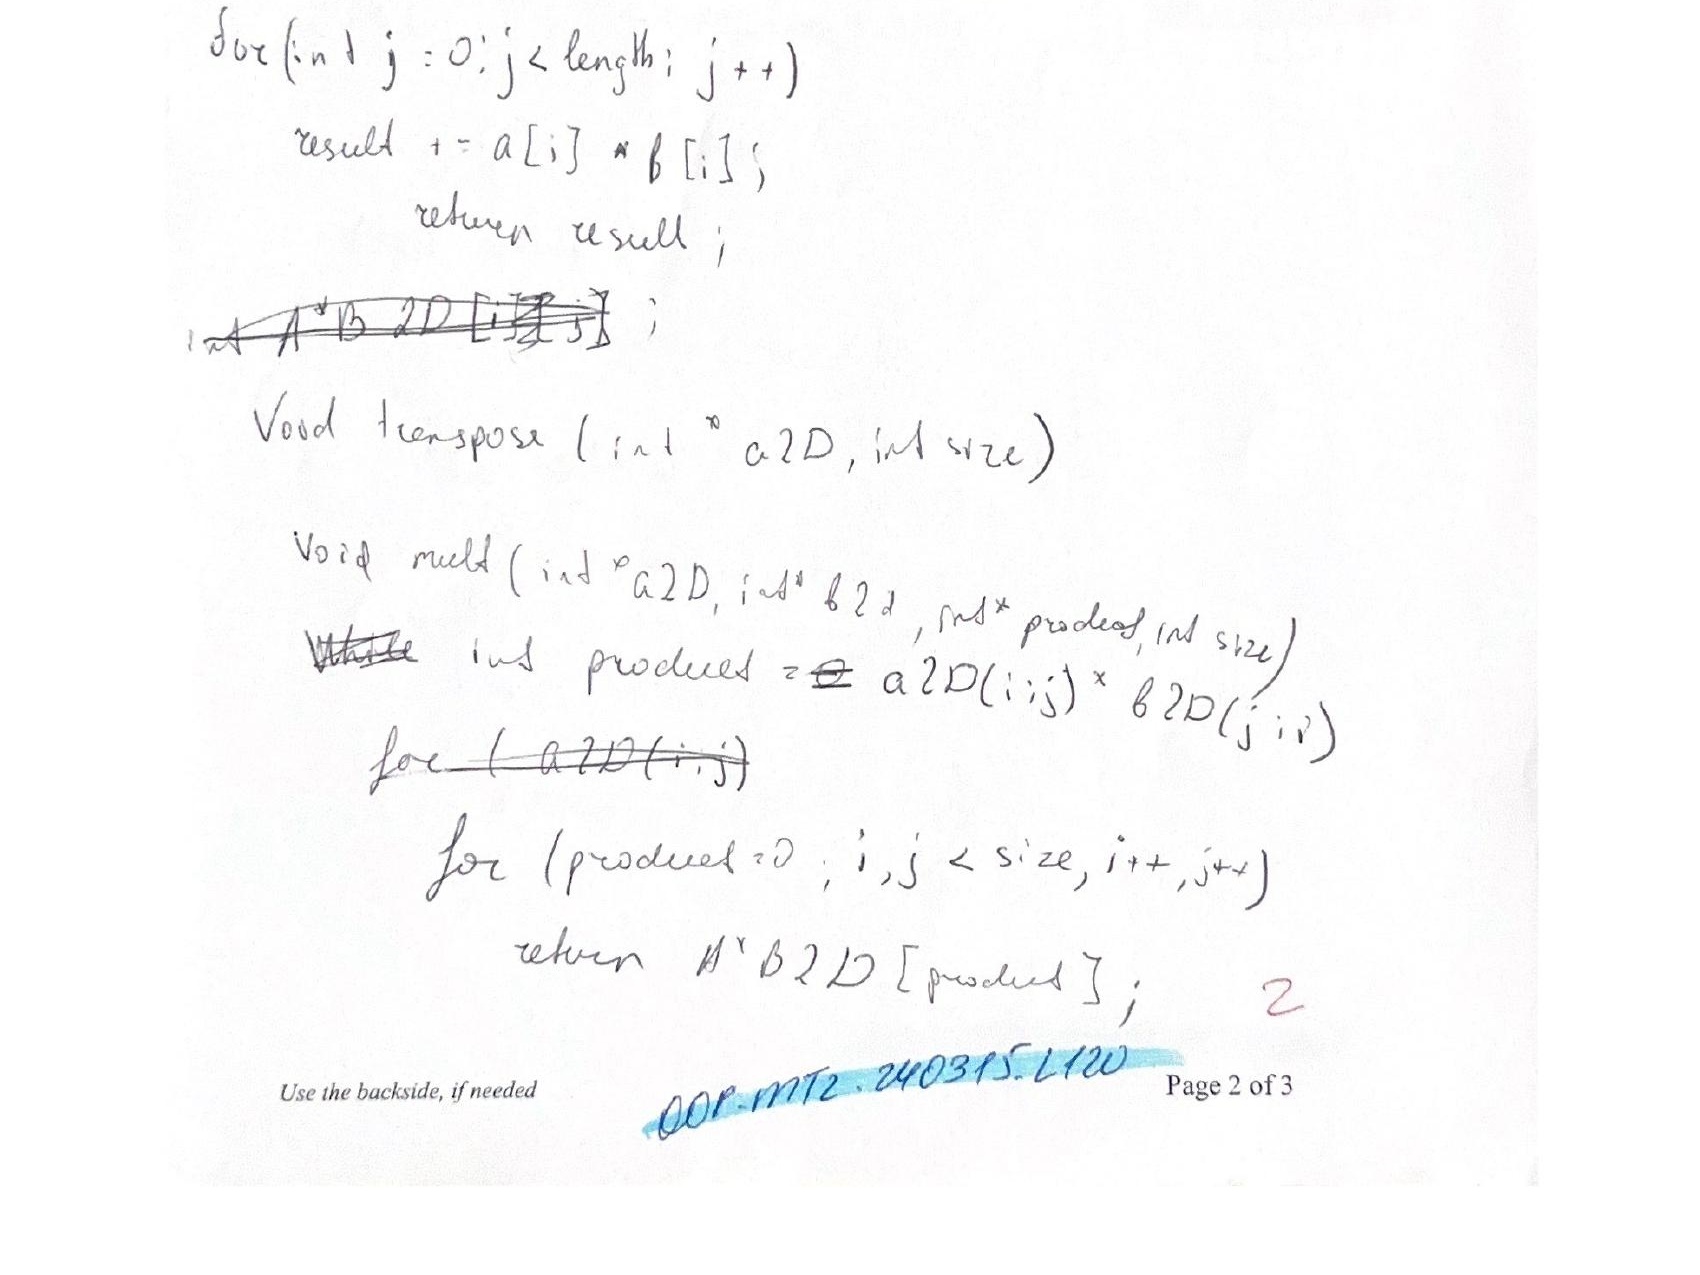 for (int j = 0; j < length; j++)
result += a[i] * b[i];
return result;
int A*B 2D [i][j] ;
Void transpose (int * a2D, int size)
Void mult (int *a2D, int* b2d, int* product, int size)
While int product = 0 a2D(i;j) * b2D(j;i)
for ( a2D(i;j)
for (product=0; i,j < size, i++,j++)
return A*B2D [product];
2
Use the backside, if needed
OOP.MT2.240315.L120
Page 2 of 3